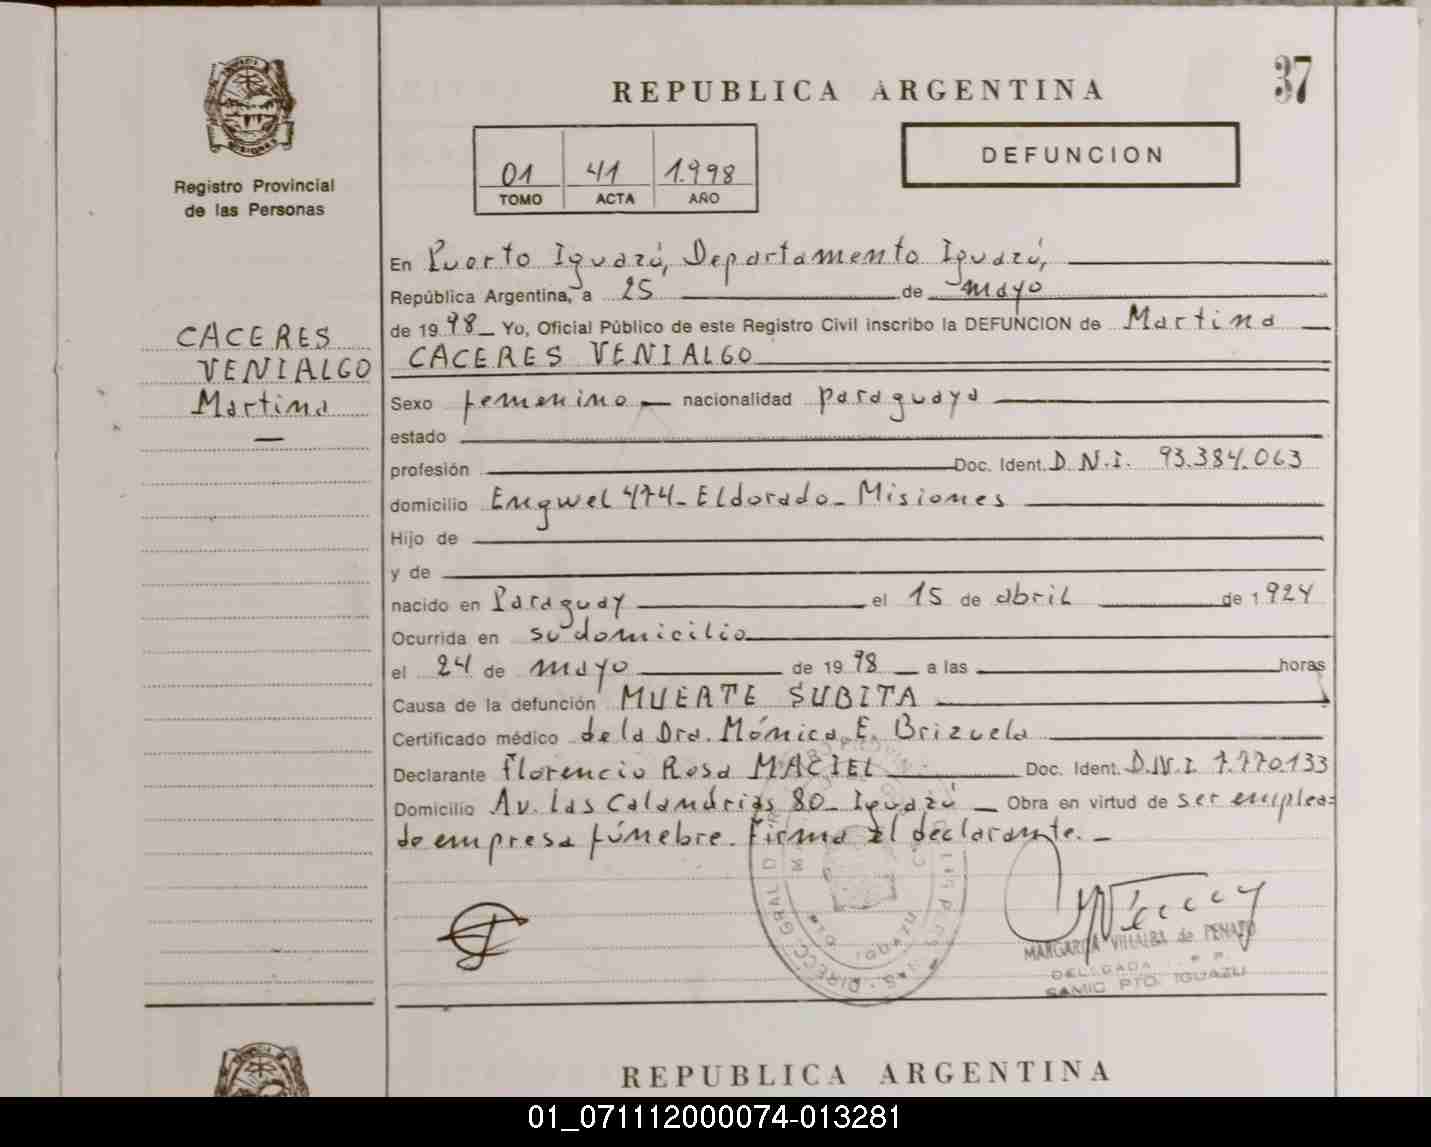 37
REPUBLICA ARGENTINA
MISIONES
Registro Provincial
de las Personas
01 41 1.998
TOMO ACTA AÑO
DEFUNCION
CACERES
VENIALGO
Martina
En Puerto Iguazú, Departamento Iguazú,
República Argentina, a 25 de mayo
de 1998 Yo, Oficial Público de este Registro Civil inscribo la DEFUNCION de Martina
CACERES VENIALGO
Sexo femenino nacionalidad paraguaya
estado
profesión Doc. Ident. D.N.I. 93.384.063
domicilio 474- Eldorado- Misiones
Hijo de
y de
nacido en Paraguay el 15 de abril de 1924
Ocurrida en su domicilio
el 24 de mayo de 1998 a las horas
Causa de la defunción MUERTE SUBITA
Certificado médico de la Dra. Mónica E. Brizuela
Declarante Florencio Rosa MACIEL Doc. Ident. D.N.I. 7.770.133
Domicilio Av. Las Calandrias 80- Iguazú - Obra en virtud de ser emplea=
do empresa fúnebre. Firma el declarante.-
MARGARITA VILLALBA de PENAYO
DELEGADA R. P.
SAMIC PTO. IGUAZU
REPUBLICA ARGENTINA
01_071112000074-013281